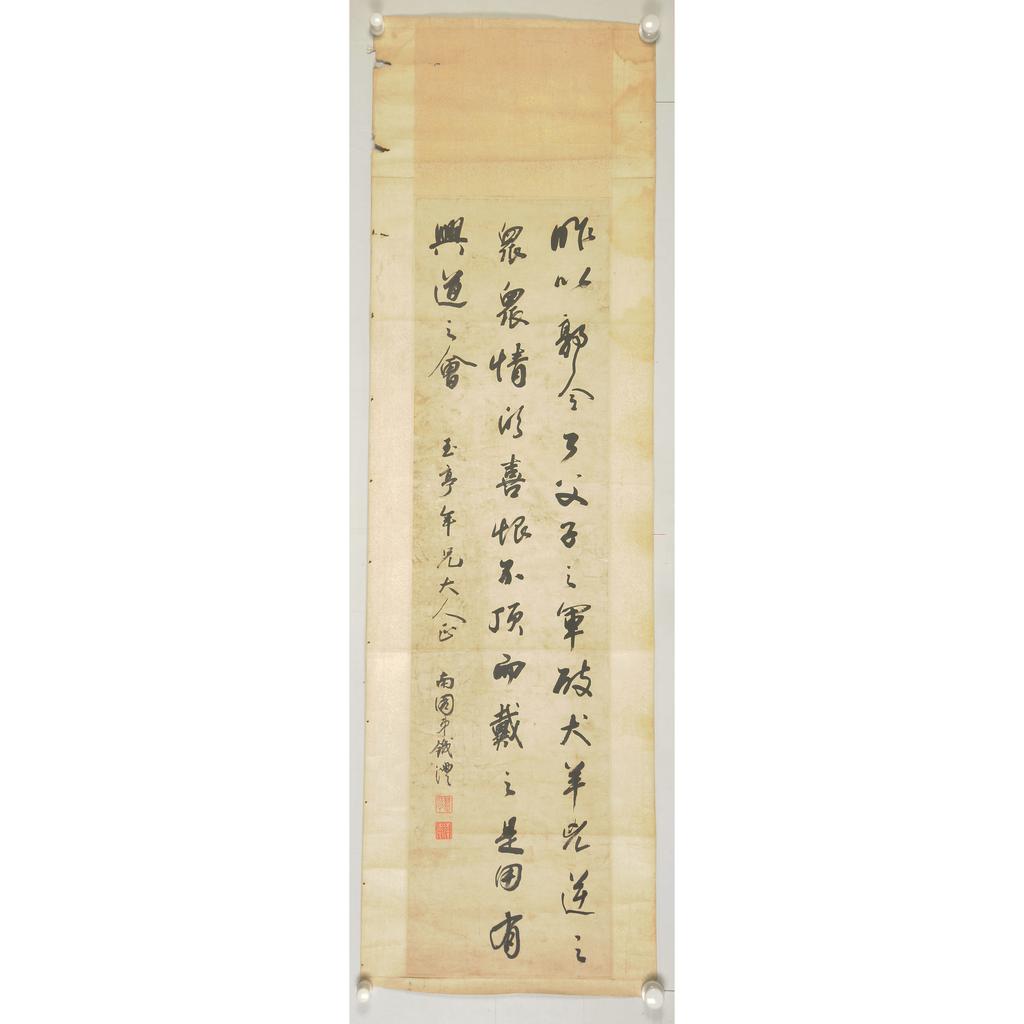 昨以郭令公父子之軍破犬羊兇逆之
眾眾情欣喜恨不頂而戴之是用有
興道之會
玉亭年兄大人正
南園弟錢灃